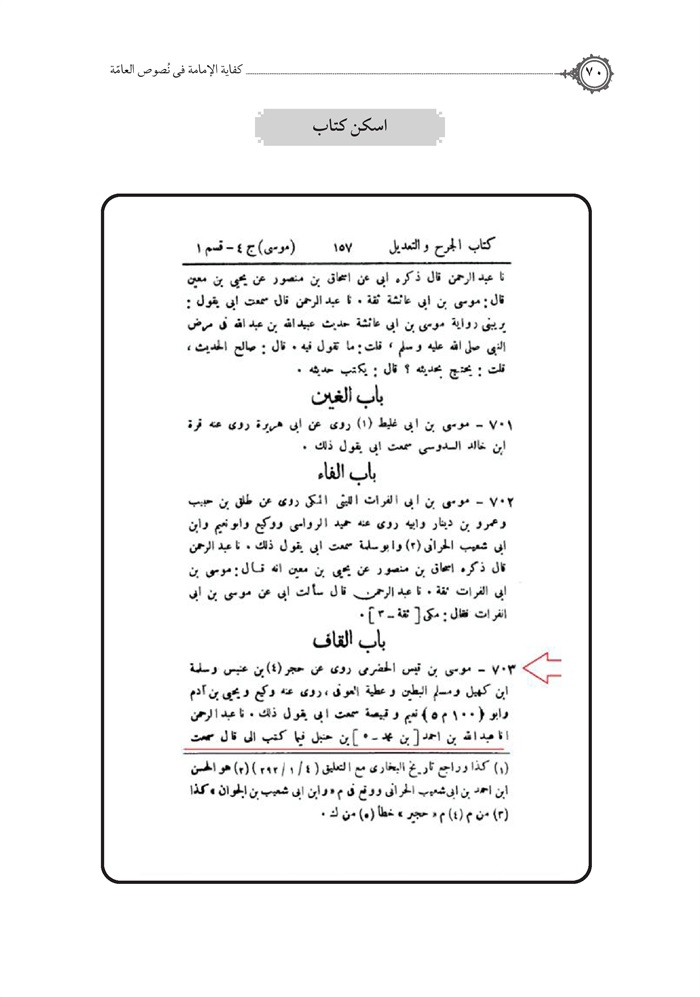 ٧٠
كفاية الإمامة فى نُصوص العامّة
اسكن كتاب
كتاب الجرح والتعديل ١٥٧ (موسى) ج ٤ – قسم ١
نا عبد الرحمن قال ذكره ابى عن اسحاق بن منصور عن يحيى بن معين
قال : موسى بن ابى عائشة ثقة . نا عبد الرحمن قال سمعت ابى يقول :
يريبنى رواية موسى بن ابى عائشة حديث عبيد الله بن عبد الله فى مرض
النبى صلى الله عليه وسلم ، قلت : ما تقول فيه . قال : صالح الحديث ،
قلت : يحتج بحديثه ؟ قال : يكتب حديثه .
باب الغين
٧٠١ – موسى بن ابى غليظ (١) روى عن ابى هريرة روى عنه قرة
ابن خالد السدوسى سمعت ابى يقول ذلك .
باب الفاء
٧٠٢ – موسى بن ابى الفرات الليثى المكى روى عن طلق بن حبيب
وعمرو بن دينار وابيه روى عنه حميد الرواسى ووكيع وابو نعيم وابن
ابى شعيب الحرانى (٢) وابو سلمة سمعت ابى يقول ذلك . نا عبد الرحمن
قال ذكره اسحاق بن منصور عن يحيى بن معين انه قال : موسى بن
ابى الفرات ثقة . نا عبد الرحمن قال سألت ابى عن موسى بن ابى
الفرات فقال : مكى [ ثقة – ٣ ] .
باب القاف
٧٠٣ – موسى بن قيس الحضرمى روى عن حجر (٤) بن عنبس وسلمة
ابن كهيل ومسلم البطين وعطية العوفى ، روى عنه وكيع ويحيى بن آدم
وابو (١٠٠ م ٥) نعيم و قبيصة سمعت ابى يقول ذلك . نا عبد الرحمن
انا عبد الله بن احمد [ بن محمد – ٥ ] بن حنبل فيما كتب الى قال سمعت
(١) كذا وراجع تاريخ البخارى مع التعليق (٤/١/٢٩٢) (٢) هو الحسن
ابن احمد بن ابى شعيب الحرانى ووقع فى م « وابن ابى شعيب بن الحوان » كذا
(٣) من م (٤) م « حجير » خطأ (٥) من ك .